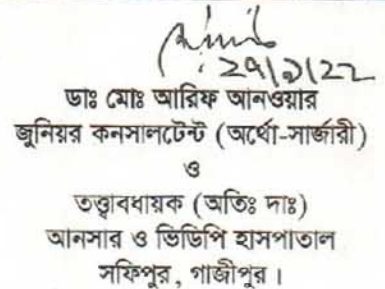 ডাঃ মোঃ আরিফ আনওয়ার
জুনিয়র কনসালটেন্ট (অর্থো-সার্জারী)
ও
তত্ত্বাবধায়ক (অতিঃ দাঃ)
আনসার ও ভিডিপি হাসপাতাল
সফিপুর, গাজীপুর।